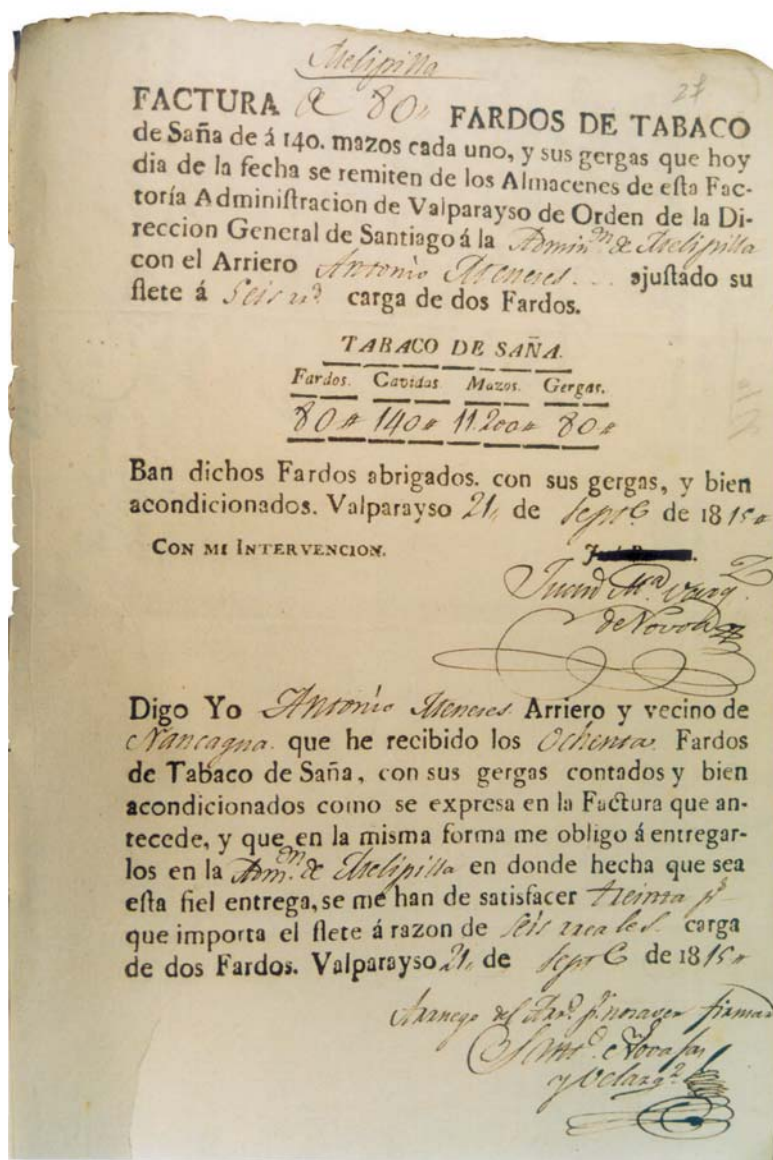 Melipilla
27
FACTURA de 80,, FARDOS DE TABACO
de Saña de á 140. mazos cada uno, y sus gergas que hoy
dia de la fecha se remiten de los Almacenes de eſta Fac-
toría Adminiſtracion de Valparayso de Orden de la Di-
reccion General de Santiago á la Admin.on de Melipilla
con el Arriero Antonio Meneses... ajuſtado su
flete á Seis r.s carga de dos Fardos.
TABACO DE SAÑA.
Fardos. Cavidas Mazos. Gergas.
80,, 140,, 11.200,, 80,,
Ban dichos Fardos abrigados. con sus gergas, y bien
acondicionados. Valparayso 21,, de Sept.e de 1815,,
CON MI INTERVENCION.
Juan M.a
de Novoa
Digo Yo Antonio Meneses Arriero y vecino de
Nancagua. que he recibido los Ochenta Fardos
de Tabaco de Saña, con sus gergas contados y bien
acondicionados como se expresa en la Factura que an-
tecede, y que en la misma forma me obligo á entregar-
los en la Adm.on de Melipilla en donde hecha que sea
eſta fiel entrega, se me han de satisfacer treinta p.s
que importa el flete á razon de seis reales. carga
de dos Fardos. Valparayso 21,, de Sept.e de 1815,,
Aruego del Arr.o p.r no saver firmar